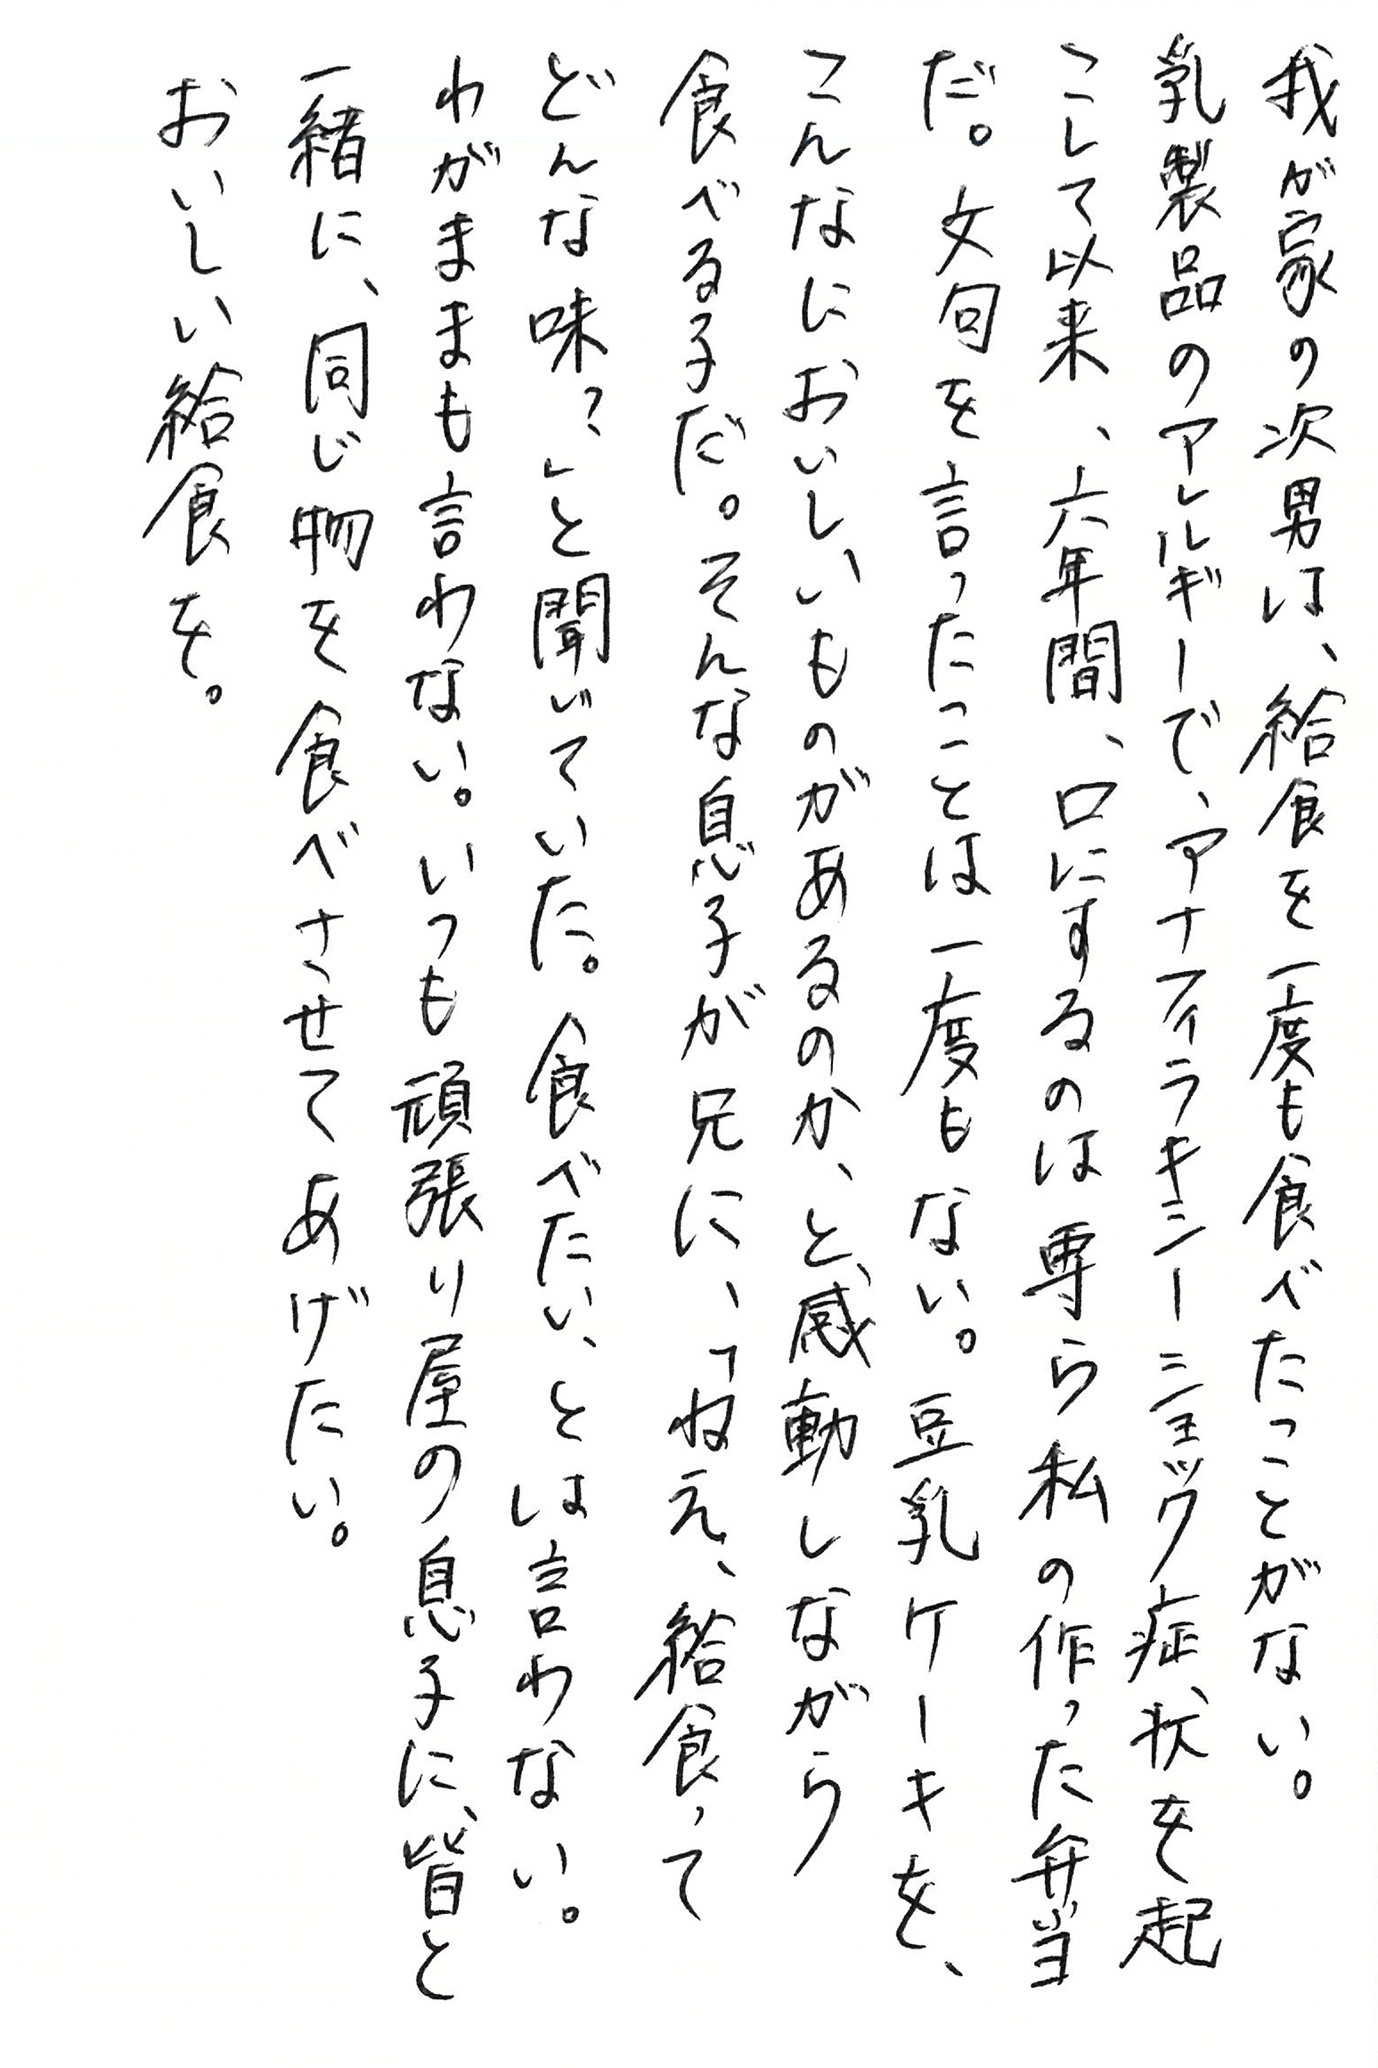 我が家の次男は、給食を一度も食べたことがない。
乳製品のアレルギーで、アナフィラキシーショック症状を起
こして以来、六年間、口にするのは専ら私の作った弁当
だ。文句を言ったことは一度もない。豆乳ケーキを、
こんなにおいしいものがあるのか、と、感動しながら
食べる子だ。そんな息子が兄に、「ねえ、給食って
どんな味?」と聞いていた。食べたい、とは言わない。
わがままも言わない。いつも頑張り屋の息子に、皆と
一緒に、同じ物を食べさせてあげたい。
おいしい給食を。